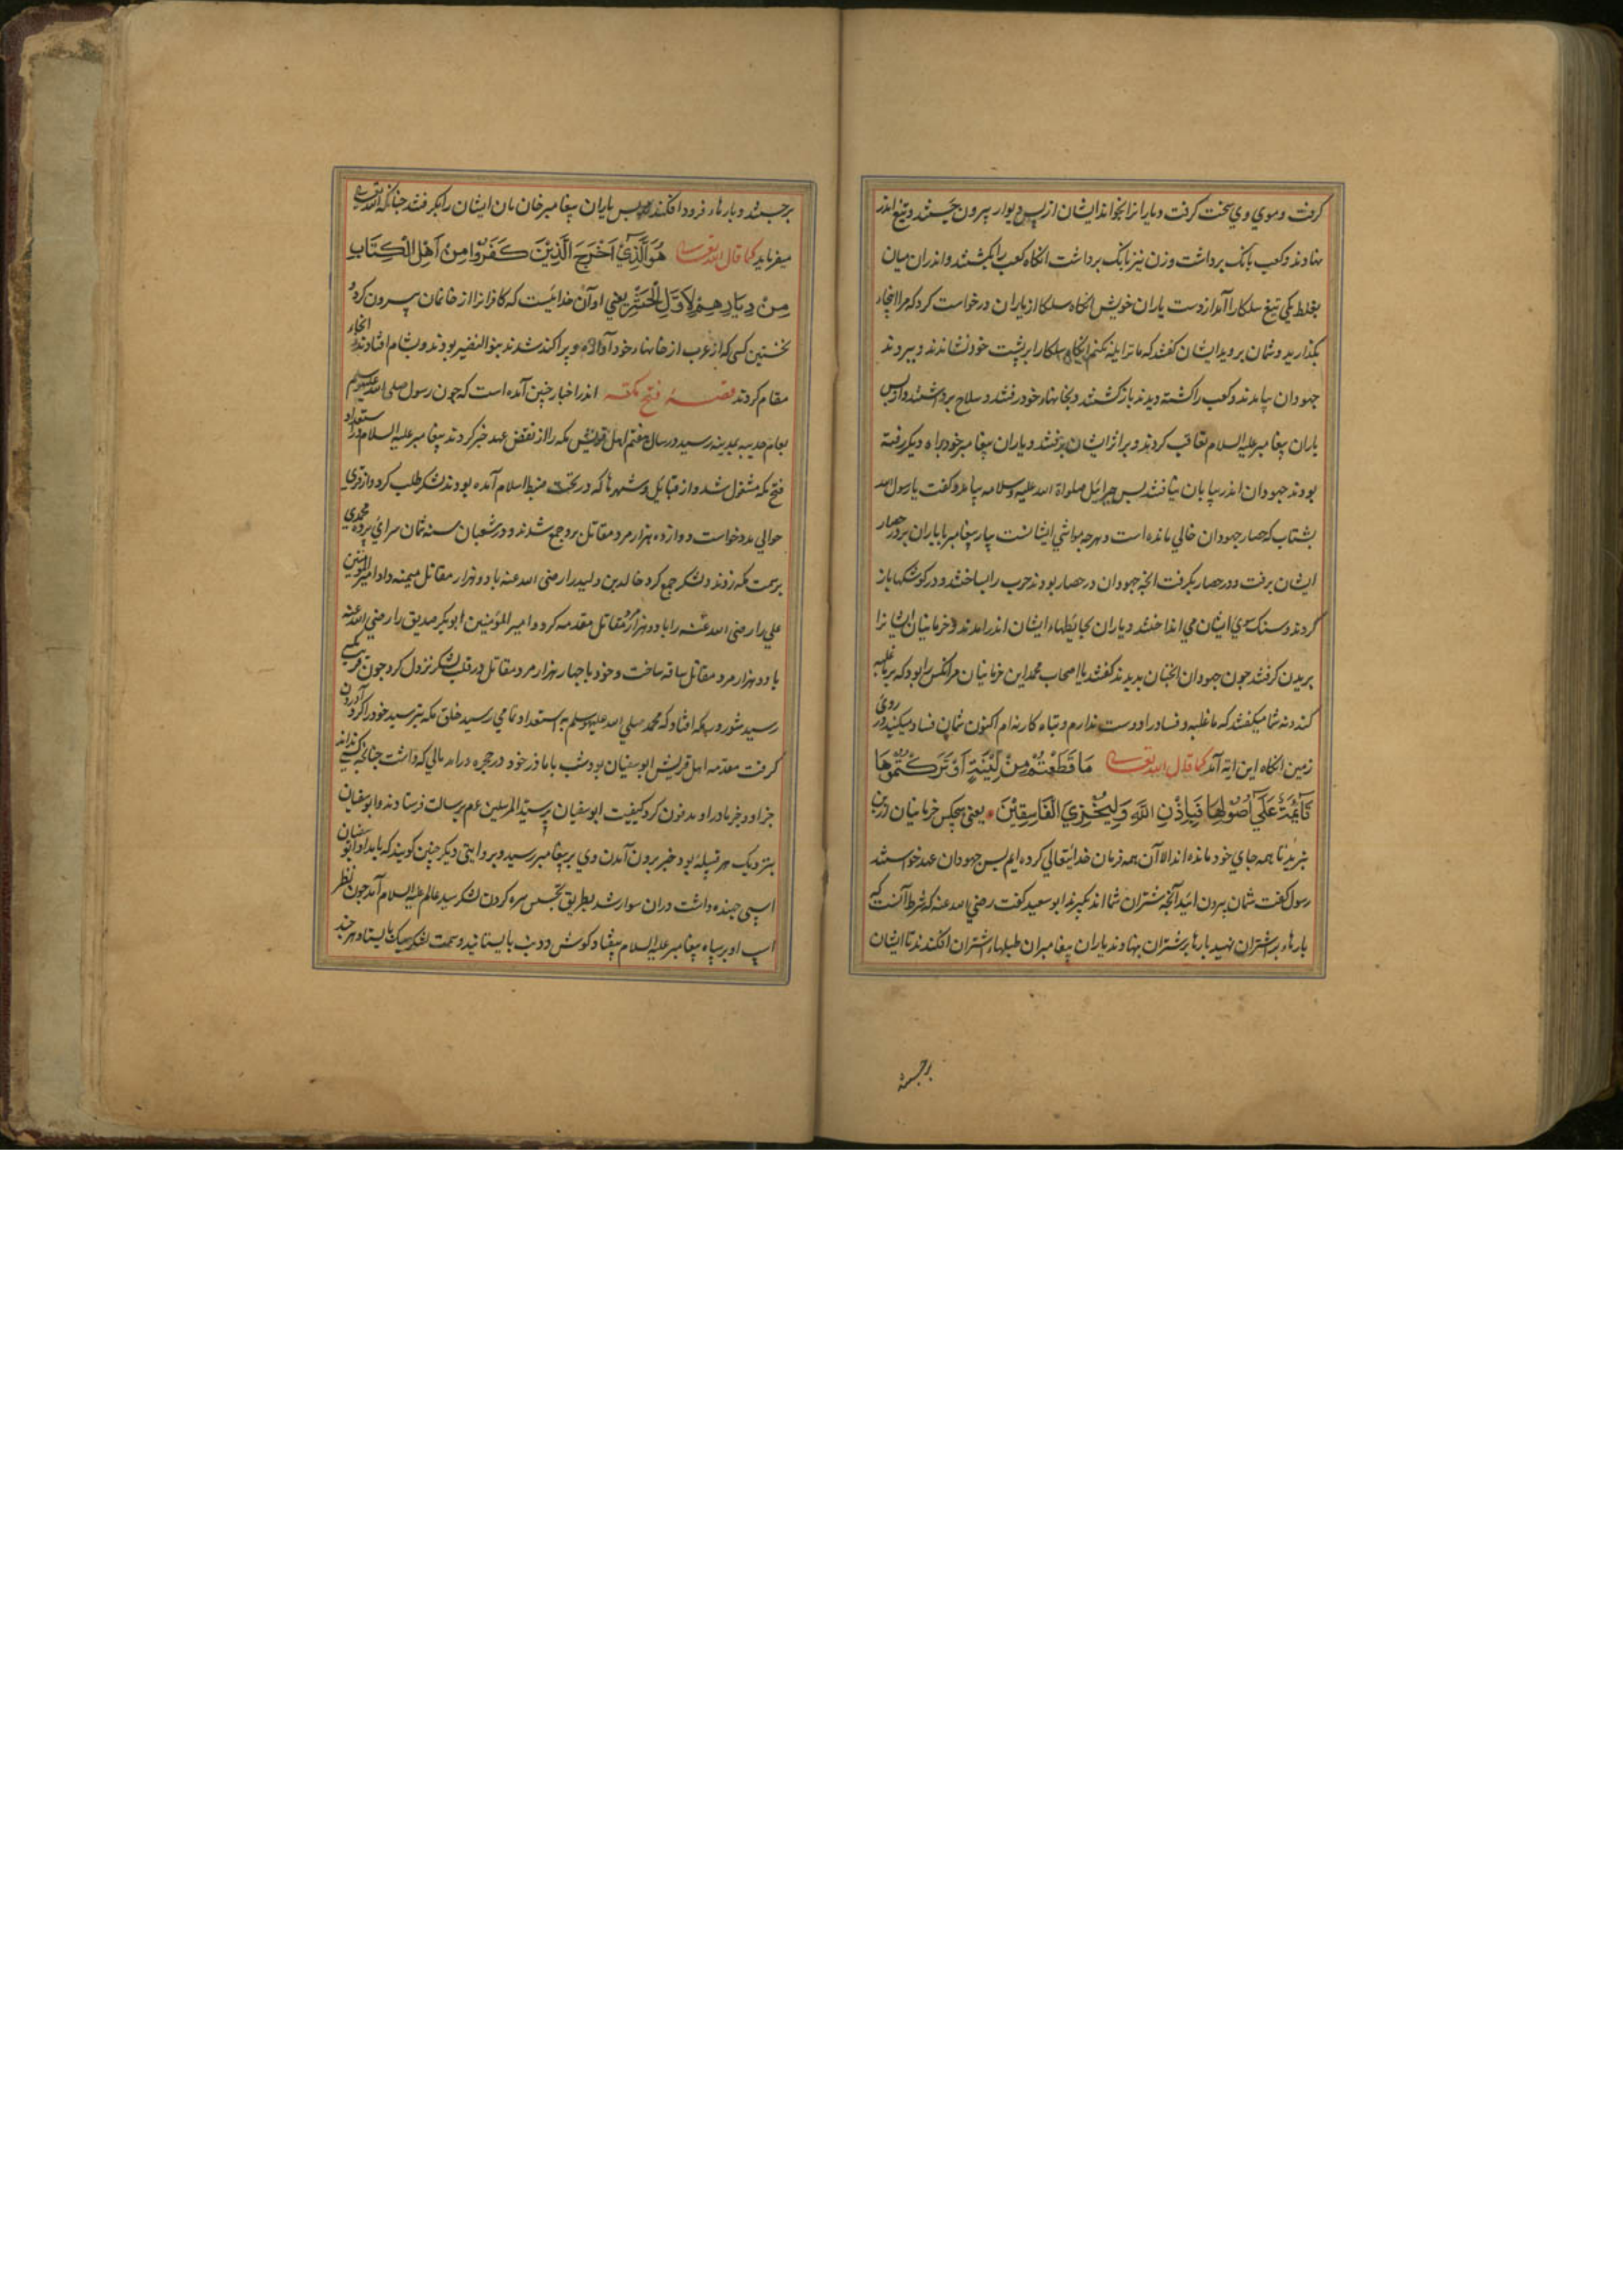 کرفت و موي وي سخت کرفت و یارانرا بخواند ایشان از پس دیوار بیرون جستند و تیغ اندر
نهادند و کعب بانک برداشت و زن نیز بانک برداشت انکاه کعب را بکشتند و اندران میان
بغلط یکي تیغ سلکا را آمد از دست یاران خویش انکاه سلکا از یاران درخواست کرد که مرا اینجا
بکذارید و شمان بروید ایشان کفتند که ما ترا یله نکنیم انکاه سلکا را بر پشت خود نشاندند و ببردند
جهودان بیامدند و کعب را کشته دیدند باز کشتند و بخانهاء خود رفتند و سلاح برداشتند و از پس
یاران پیغامبر علیه السلام تعاقب کردند و بر اثر ایشان برفتند و یاران پیغامبر خود براه دیکر رفته
بودند جهودان اندر بیابان نیافتند پس جبرائیل صلواة الله علیه و سلامه بیامد و کفت یا رسول الله
بشتاب که حصار جهودان خالي مانده است و هرچه مواشي ایشانست بیار پیغامبر با یاران بر در حصار
ایشان برفت و در حصار بکرفت انچه جهودان در حصار بودند حرب را بساختند و در کوشکها باز
کردند و سنک سوي ایشان مي انداختند و یاران بحائطهاء ایشان اندر امدند و خرمانیان ایشانرا
بریدن کرفتند چون جهودان انچنان بدیدند کفتند یا اصحاب محمد این خرمانیان مر انکس را بود که بر ما غلبه
کند و نه شما میکفتند که ما غلبه و فساد را دوست نداریم و تباه کار نه ایم اکنون شمان فساد میکنید در روئ
زمین انکاه این ایه آمد کما قال الله تعالی مَا قَطَعْتُمْ مِنْ لِیْنَةٍ اَوْ تَرَکْتُمُوْهَا
قَآئِمَةً عَلَي اُصُوْلِهَا فَبِاِذْنِ اللَّهِ وَلِیُخْزِيَ الْفَاسِقِیْنَ یعنی هیچکس خرمانیان درین
نبریدند تا همه جاي خود مانده اند الا آن همه فرمان خدایتعالي کرده ایم پس جهودان عهد خواستند
رسول کفت شمان بیرون ائید آنچه شتران شما اند بکیرند ابو سعید کفت رضي الله عنه که شرط آنست که
بارهاء بر اشتران نهید بارها بر شتران بنهادند یاران پیغامبران طبلهاء اشتران افکندند تا ایشان
برجستند
برجستند و بارهاء فرود افکندند پس یاران پیغامبر خان مان ایشان را بکرفتند چنانکه الله تعالی
میفرماید کما قال الله تعالی هُوَالَّذِيْ اَخْرَجَ الَّذِیْنَ کَفَرُوْا مِنْ اَهْلِ الْکِتَابِ
مِنْ دِیَارِهِمْ لِاَوَّلِ الْحَشْرِ یعني او آن خدائیست که کافرانرا از خانمان بیرون کرد و
نخستین کسی که از عرب از خانهاء خود آواره و پراکند شدند بنو النضیر بودند و بشام افتادند و انجاء
مقام کردند قصهٔ فتح مکه اندر اخبار چنین آمده است که چون رسول صلی الله علیه وسلم
بعام حدیبیه بمدینه رسید در سال هفتم اهل قریش مکه را از نقض عهد خبر کردند پیغامبر علیه السلام در استعداد
فتح مکه مشغول شد و از قبائل و شهرها که در تحت ضبط اسلام آمده بودند لشکر طلب کرد و از قري
حوالي مدد خواست دوازده هزار مرد مقاتل برو جمع شدند و در شعبان سنه ثمان سراي پرده محمدي
بر سمت مکه زدند و لشکر جمع کرد خالد بن ولید را رضی الله عنه با دو هزار مقاتل میمنه داد و امیر المؤمنین
علي را رضی الله عنه را با دو هزار مرد مقاتل مقدمه کرد و امیر المؤمنین ابوبکر صدیق را رضي الله عنه
با دو هزار مرد مقاتل ساقه ساخت و خود با چهار هزار مرد مقاتل در قلب لشکر نزول کرد چون قریب مکه
رسید شور در مکه افتاد که محمد صلي الله علیه وسلم به استعداد تمامي رسید خلق مکه بترسید خود را کرد آوردن
کرفت مقدمه اهل قریش ابو سفیان بود شب با مادر خود در حجره درامد مالي که داشت چنانکه کسی نداند
جز او و جز مادر او مدفون کرد کیفیت ابو سفیان پر سید المرسلین عم برسالت فرستادند و ابوسفیان
بنزدیک هر قبیله بود خبر برون آمدن وي بر پیغامبر رسید و بروایتی دیکر چنین کویند که بامداد ابو سفیان
اسپی جهنده داشت دران سوار شد بطریق تجسس سره کردن لشکر سید عالم علیه السلام آمد چون نظر
اسپ او بر سپاه پیغامبر علیه السلام بیفتاد کوش و دنب بایستانید و سمت لشکر نیک بایستاد هر چند